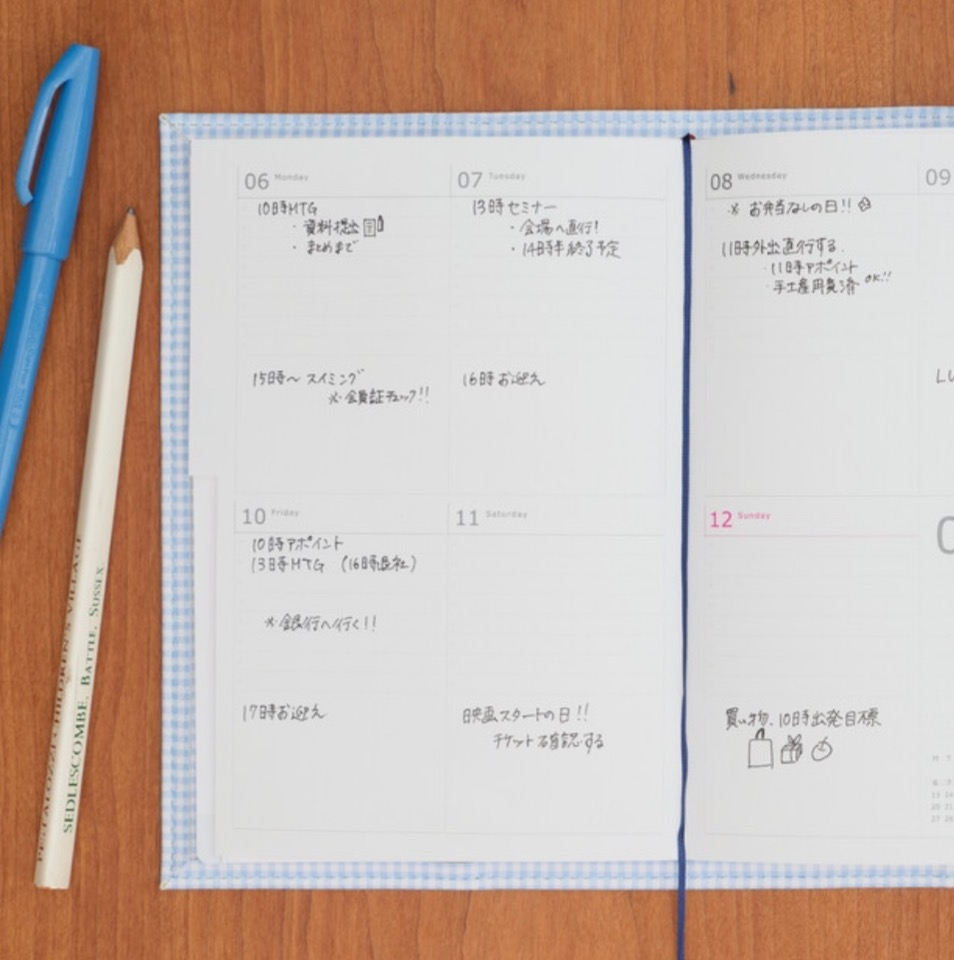 06 Monday
10時MTG
・資料提出
・まとめまで
15時〜 スイミング
※会員証チェック!!
07 Tuesday
13時セミナー
・会場へ直行!
・14時半終了予定
16時お迎え
08 Wednesday
※ お弁当なしの日!!
11時外出直行する.
・11時アポイント
・手土産用意済 OK!!
09
LU
10 Friday
10時アポイント
13時MTG (16時退社)
※銀行へ行く!!
17時お迎え
11 Saturday
映画スタートの日!!
チケット確認する
12 Sunday
買い物、10時出発目標
PESTALOZZI CHILDREN'S VILLAGE
SEDLESCOMBE. BATTLE. SUSSEX.